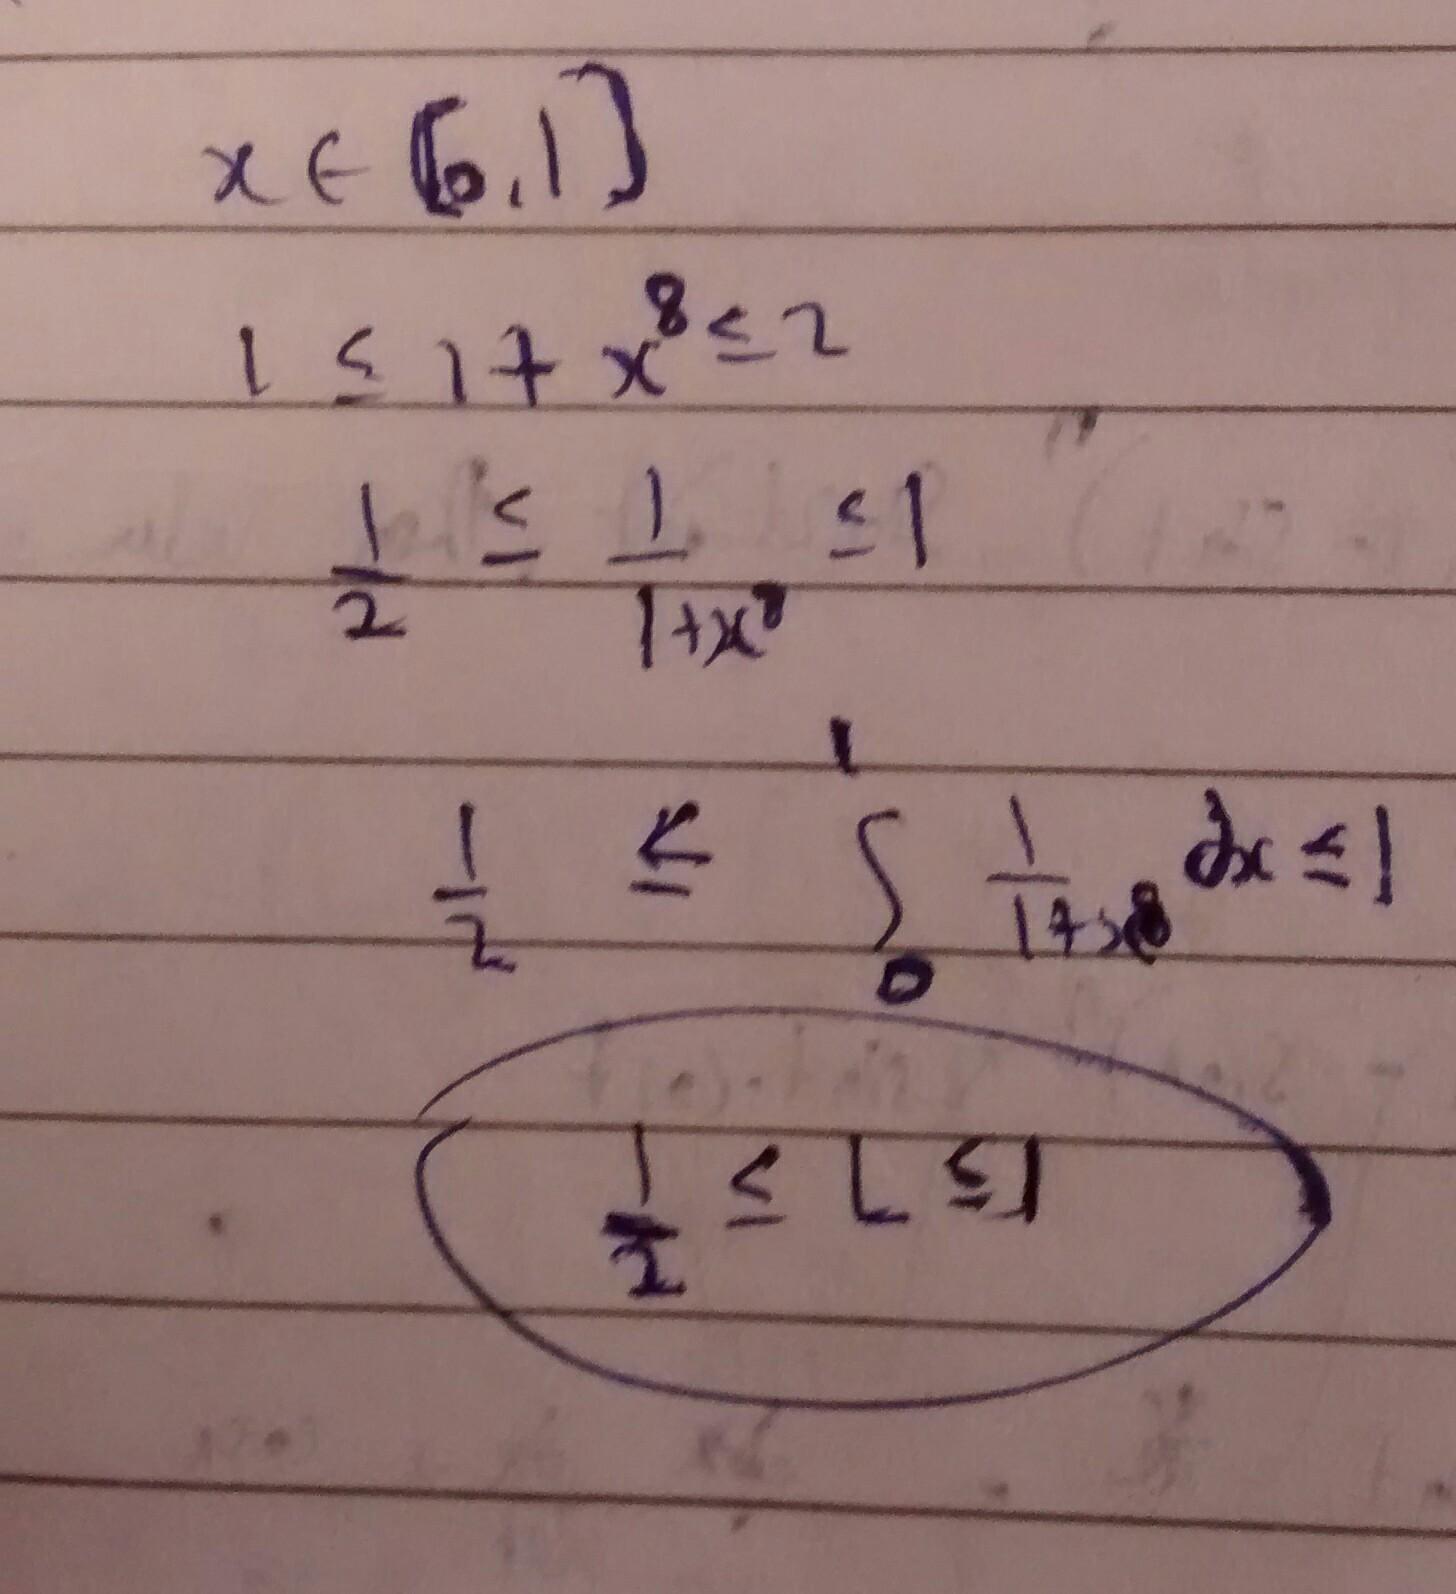 x ∈ [0,1]
1 ≤ 1+ x⁸ ≤ 2
1/2 ≤ 1/(1+x⁸) ≤ 1
1/2 ≤ ∫₀¹ 1/(1+x⁸) dx ≤ 1
1/2 ≤ L ≤ 1